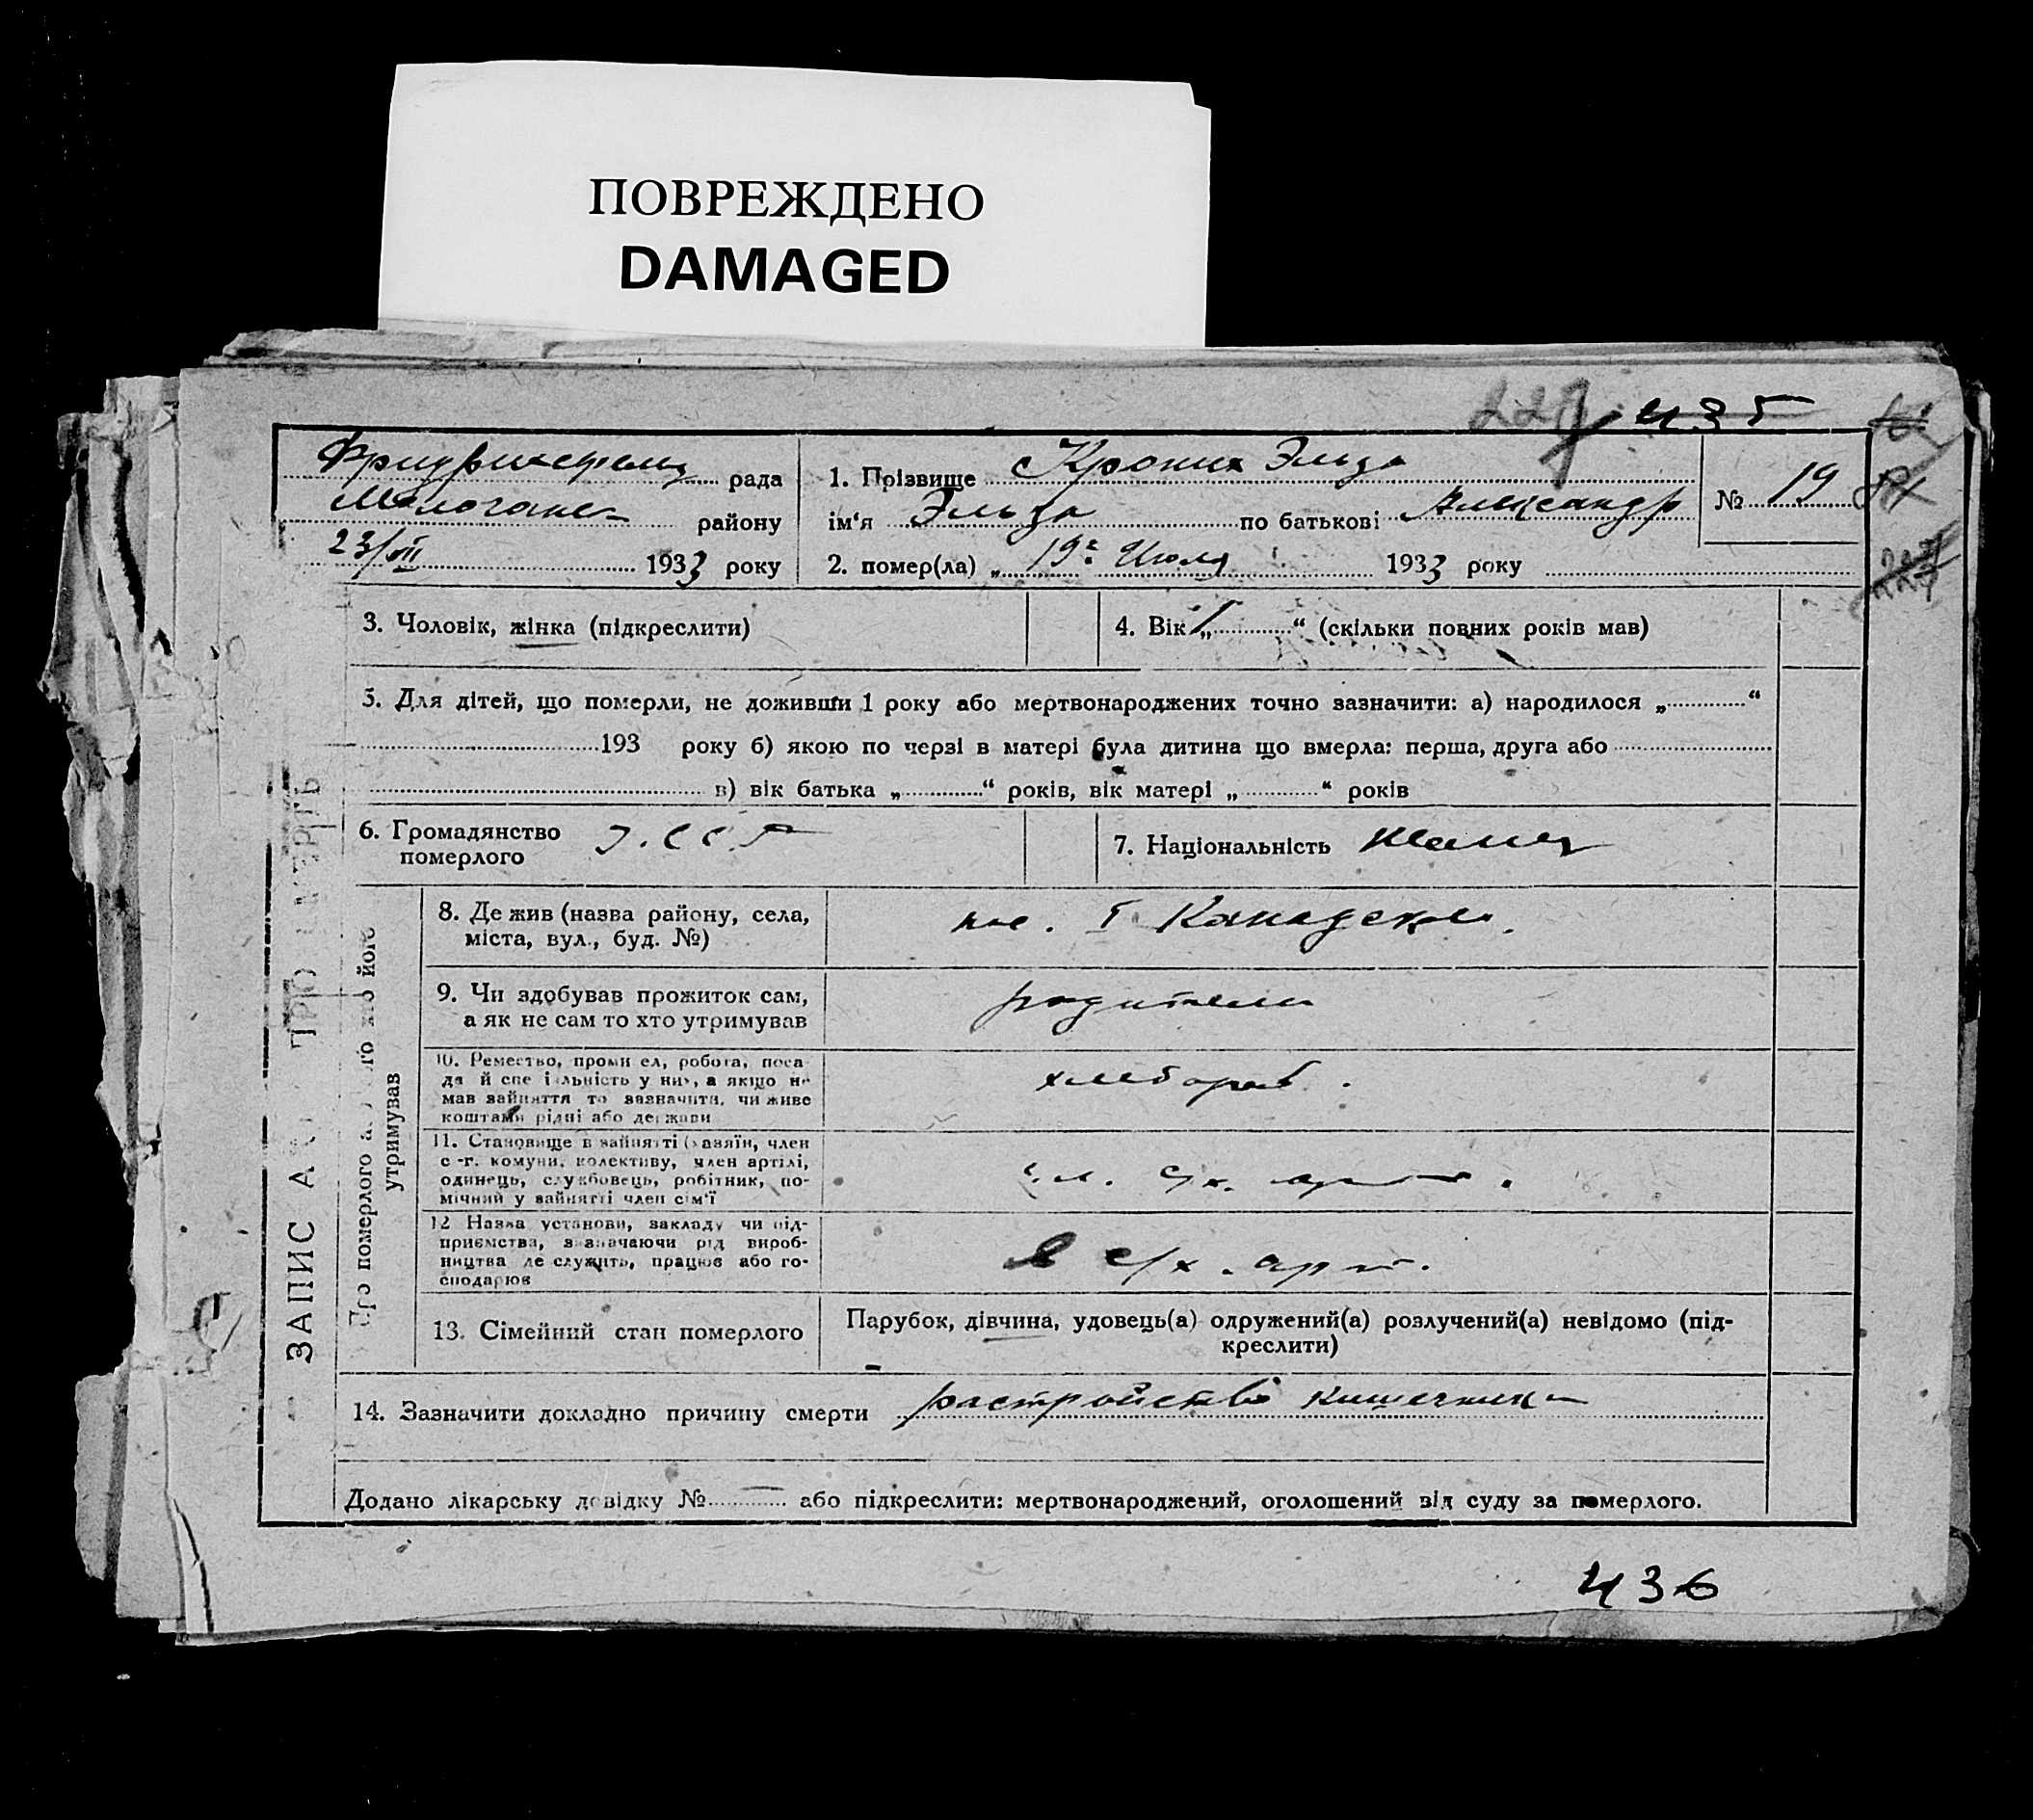 ПОВРЕЖДЕНО
DAMAGED
435
рада
района
23/VII 1933 року
1. Прізвище Крони Эльза
ім'я Эльза по батькові Александр
2. помер(ла) „ 19го Июля 1933 року
№ 19
3. Чоловік, жінка (підкреслити)
4. Вік „ 1 “ (скільки повних років мав)
5. Для дітей, що померли, не доживши 1 року або мертвонароджених точно зазначити: а) народилося „ “
193 року б) якою по черзі в матері була дитина що вмерла: перша, друга або
в) вік батька „ “ років, вік матері „ “ років
6. Громадянство
померлого
7. Національність
8. Де жив (назва району, села,
міста, вул., буд. №)
9. Чи здобував прожиток сам,
а як не сам то хто утримував
родители
10. Ремество, промисел, робота, поса-
да й спеціальність у них, а якщо не
мав зайняття то зазначити, чи живе
коштами рідні або держави
хлебороб.
11. Становище в зайнятті (хазяїн, член
с-г. комуни, колективу, член артілі,
одинець, службовець, робітник, по-
мічний у зайнятті член сім'ї
чл. с/х. арт.
12 Назва установи, закладу чи під-
приємства, зазначаючи рід вироб-
ництва де служить, працює або го-
сподарює
в с/х. арт.
13. Сімейний стан померлого
Парубок, дівчина, удовець(а) одружений(а) розлучений(а) невідомо (під-
креслити)
14. Зазначити докладно причину смерти растройство кишечника
Додано лікарську довідку № — або підкреслити: мертвонароджений, оголошений від суду за померлого.
ЗАПИС АКТУ ПРО СМЕРТЬ
Про померлого або того хто його
утримував
436